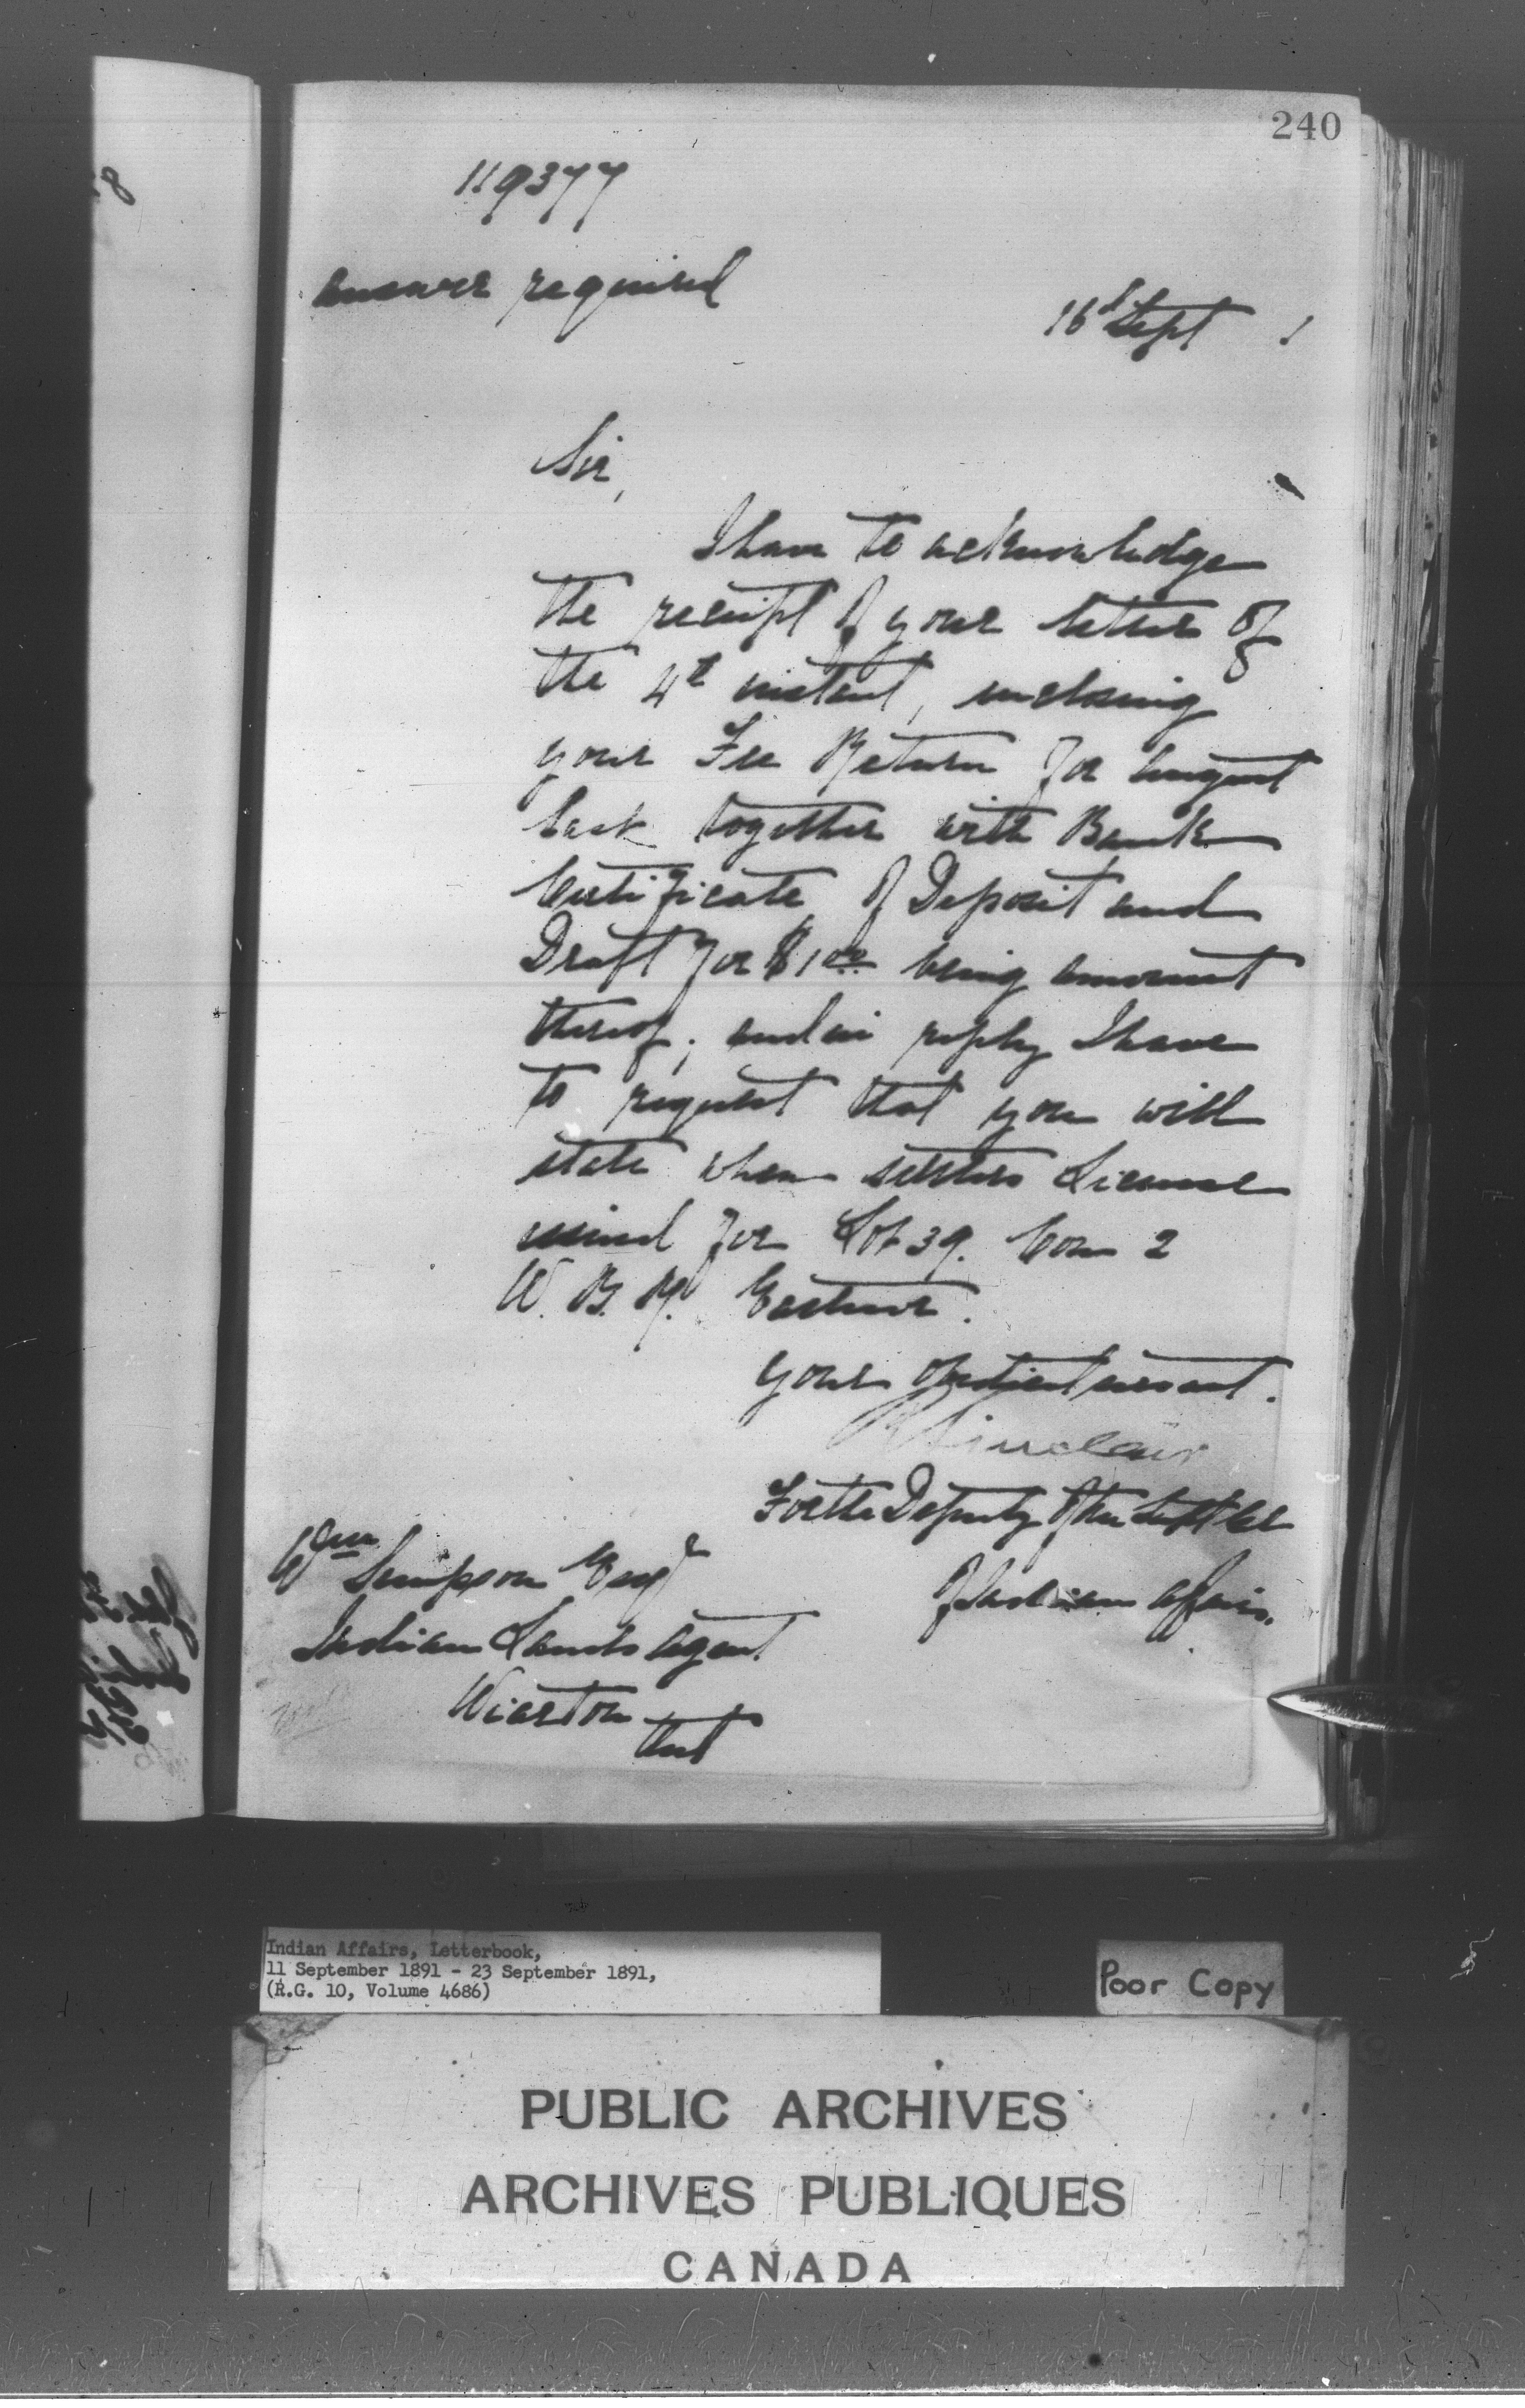 240
119377
Answer required
16th Sept 1
Sir,
I have to acknowledge
the receipt of your letter of
the 4th instant, enclosing
your Fee Return for August
last together with Bank
Certificate of Deposit and
Draft for $1.00 being amount
thereof; and in reply I have
to request that you will
state when settlers License
issued for Lot 39. Con 2
W. B. R. Eastnor.
Your obedient servant.
R Sinclair
For the Deputy of the Supt Genl
of Indian Affairs.
Wm Simpson Esqr
Indian Lands Agent
Wiarton
Ont
Indian Affairs, Letterbook,
11 September 1891 - 23 September 1891,
(R.G. 10, Volume 4686)
Poor Copy
PUBLIC ARCHIVES
ARCHIVES PUBLIQUES
CANADA